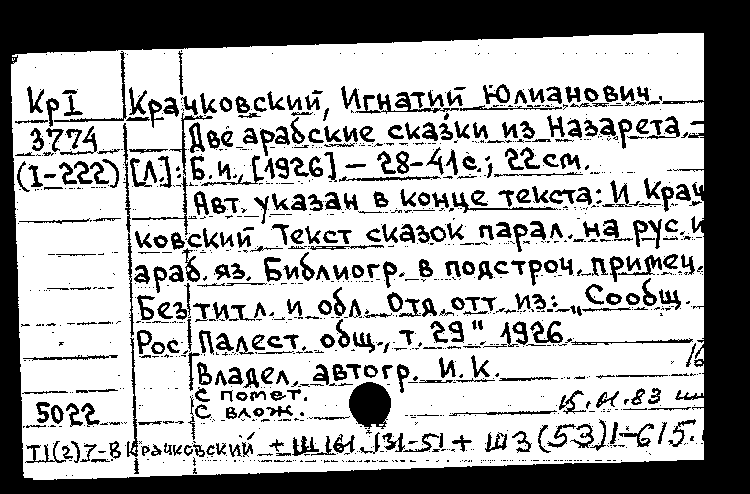 КрI Крачковский, Игнатий Юлианович.
3774 Две арабские сказки из Назарета.–
(I-222) [Л.]: Б.и., [1926] – 28-41с.; 22см.
Авт. указан в конце текста: И Крач
ковский. Текст сказок парал. на рус. и
араб. яз. Библиогр. в подстроч. примеч.
Без титл. и обл. Отд. отт. из: „Сообщ.
Рос. Палест. общ., т. 29". 1926.
Владел. автогр. И. К. 16
С помет.
5022 С влож. 83
Т1(2)7-В Крачковский + Ш161.131-51 + Ш3(53)1-615.